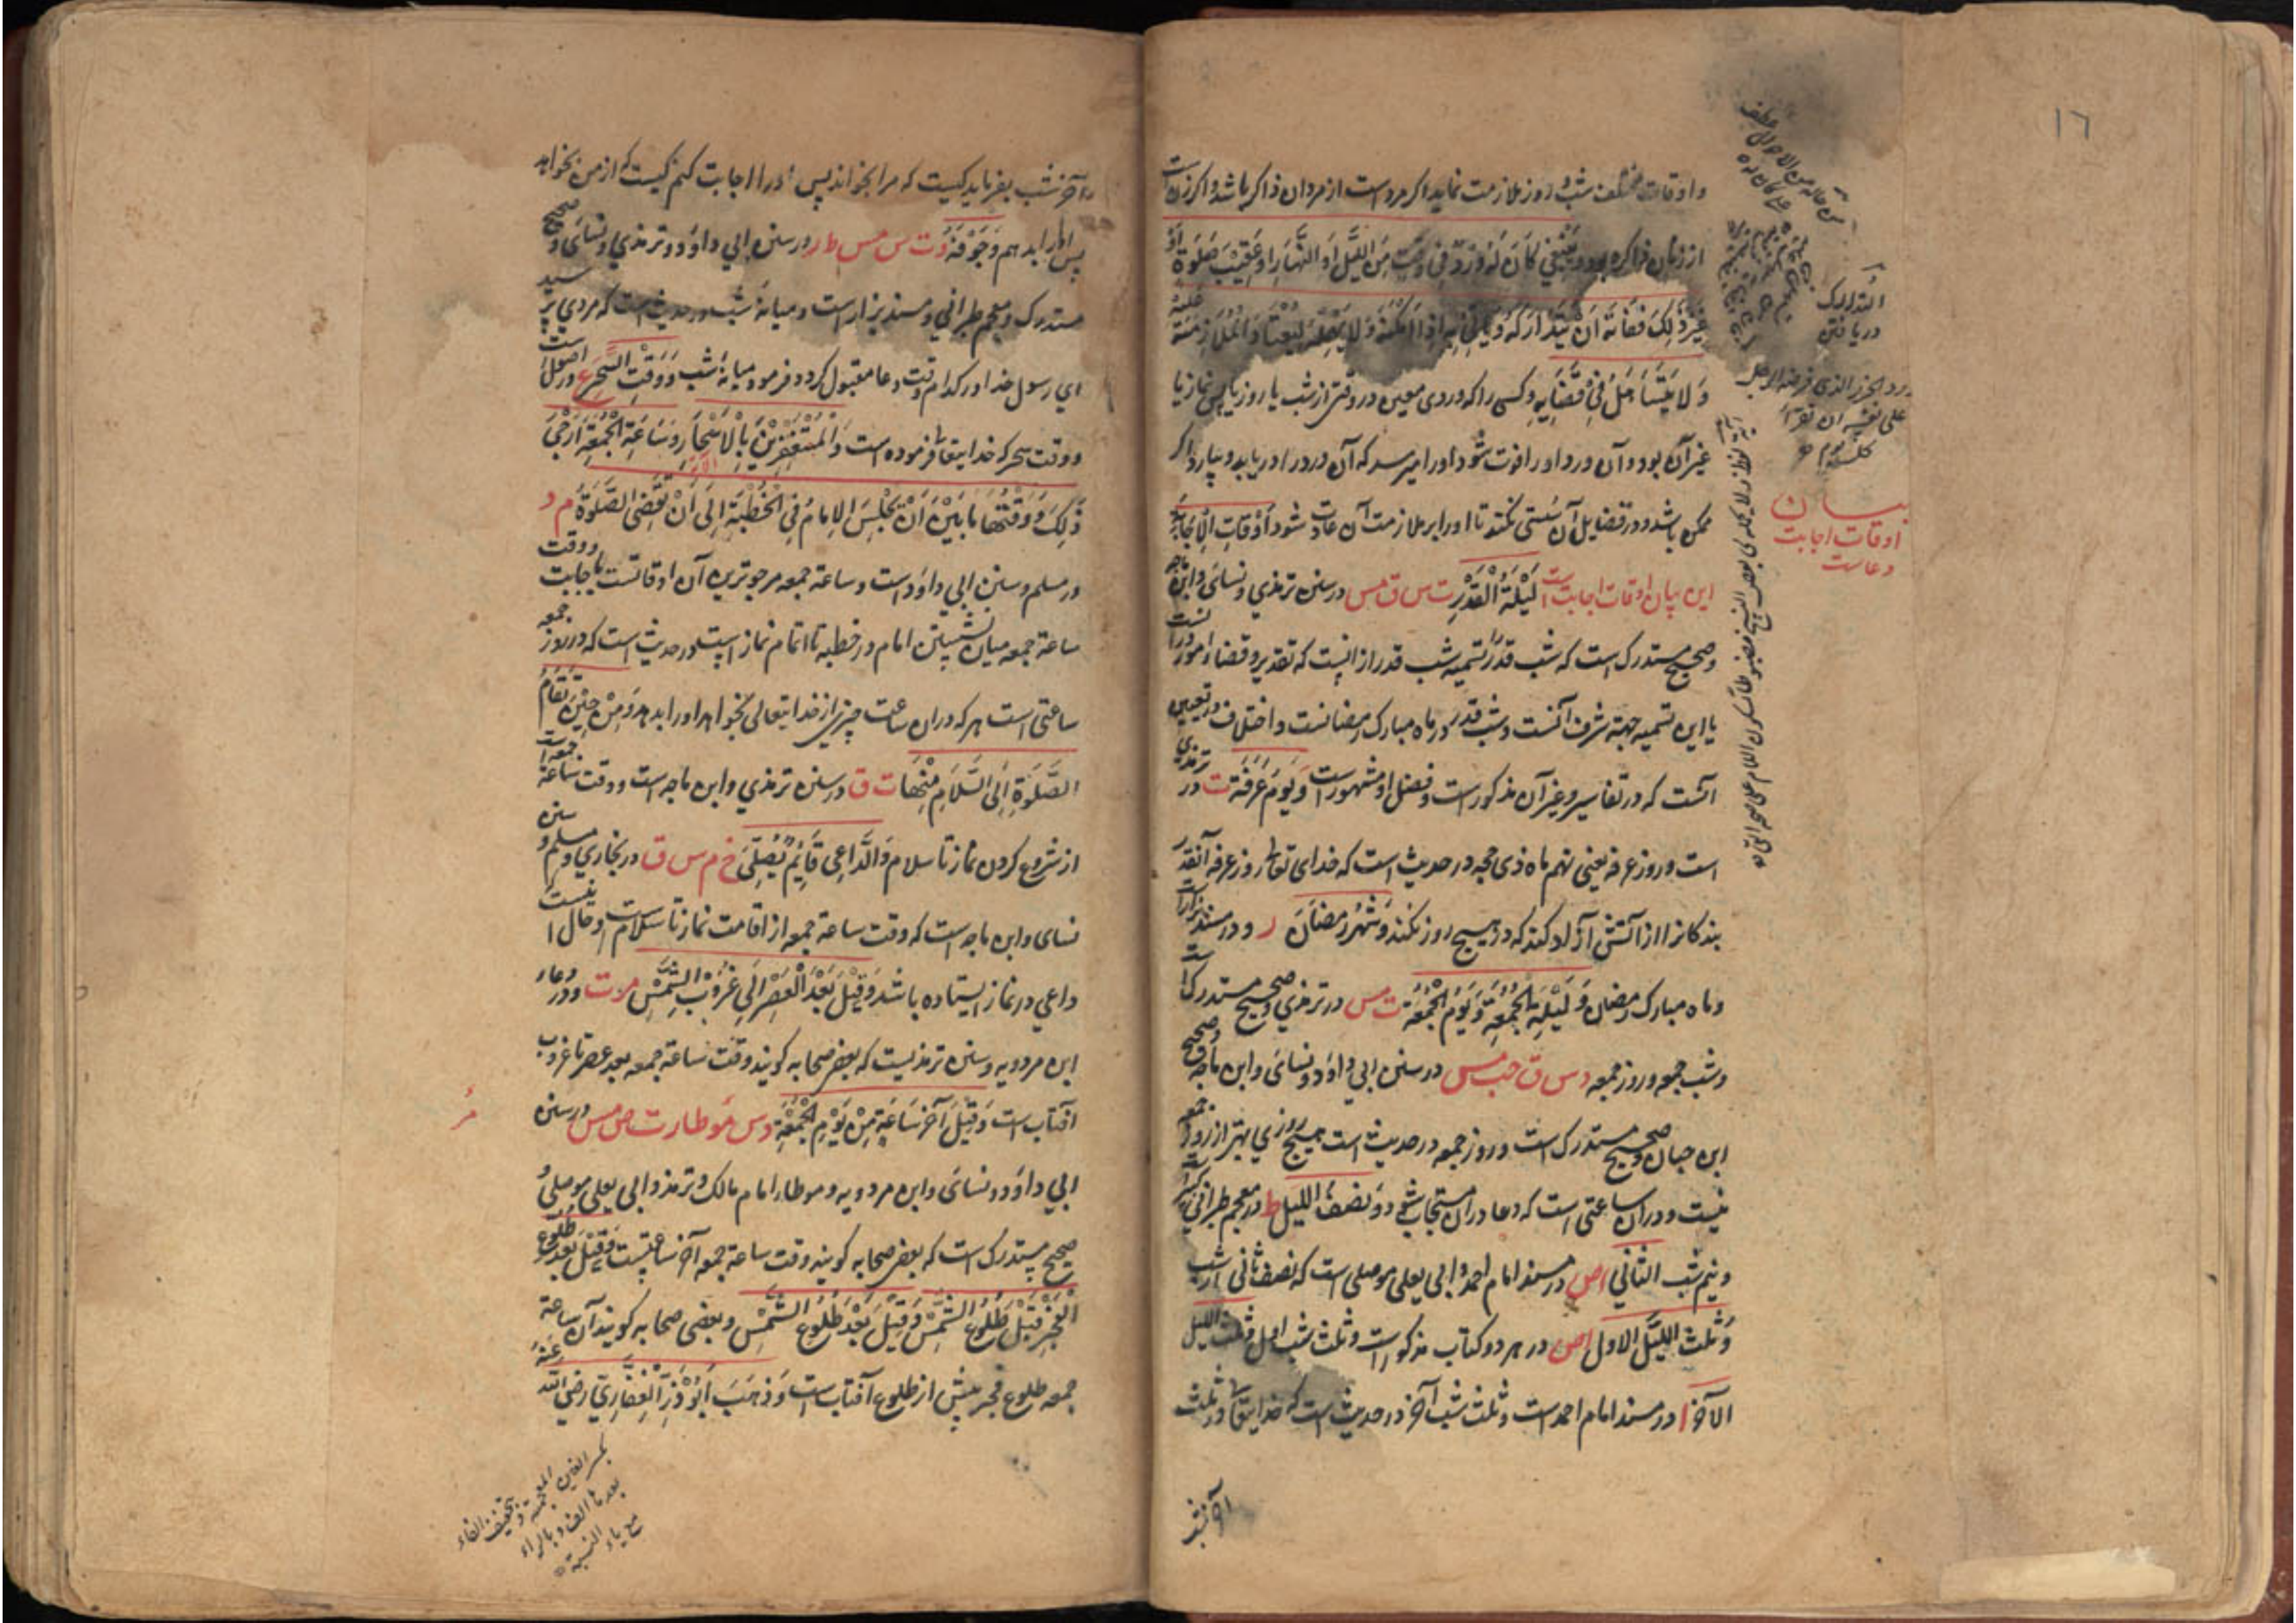 ١٦
واوقات مختلف شب و روز ملازمت نماید اکر مرد است از مردان ذاکر باشد و اکر زن است
از زنان ذاکره بود وَیَنْبَغِي لِمَنْ کَانَ لَهُ وِرْدٌ فِي وَقْتٍ مِنَ اللَّیْلِ اَوِ النَّهَارِ اَوْ عَقِیْبَ صَلٰوةٍ اَوْ
غَیْرِ ذٰلِکَ فَفَاتَهُ اَنْ یَتَدَارَکَهُ وَیَاْتِيَ بِهِ اِذَا اَمْکَنَهُ وَلَا یُهْمِلَهُ لِیَعْتَادَ الْمُلَازَمَةَ عَلَیْهِ
وَلَا یَتَسَاهَلُ فِيْ قَضَایِهِ وکسی را که وردی معین در وقتی از شب یا روز یا پس نماز یا
غیر آن بود و آن ورد او را فوت شود او را میرسد که آن ورد را دریابد و بیارد اکر
ممکن باشد و در قضایل آن سستی نکند تا او را بر ملازمت آن عادت شود اَوْقَاتِ الْاِجَابَةِ
این بیان اوقات اجابت است لَیْلَةُ الْقَدْرِ ت س ق مس در سنن ترمذي و نسائی و ابن ماجه
و صحیح مستدرک است که شب قدر تسمیه شب قدر از انست که تقدیر و قضاء امور در انست
یا این تسمیه جهة شرف آنست و شب قدر در ماه مبارک رمضانست و اختلاف در تعیین
انست که در تفاسیر و غیر آن مذکور است و فضل او مشهور است وَیَوْمُ عَرَفَةَ ت در ترمذي
است و روز عرفه یعنی نهم ماه ذی حجه در حدیث است که خدای تعالی روز عرفه آنقدر
بندکانرا از آتش آزاد کند که در هیچ روز نکند وَشَهْرُ رَمَضَانَ ر و در مسند بزار است
و ماه مبارک رمضان وَلَیْلَةُ الْجُمُعَةِ وَیَوْمُ الْجُمُعَةِ ت مس در ترمذي و صحیح مستدرک است
و شب جمعه و روز جمعه د س ق حب مس در سنن ابي داود و نسائی و ابن ماجه و صحیح
ابن حبان و صحیح مستدرک است و روز جمعه در حدیث است هیچ روزي بهتر از روز جمعه
نیست و در ان ساعتی است که دعا در ان مستجاب شود وَنِصْفُ اللَّیْلِ ط در معجم طبراني کبیر
و نیم شب الثَّانِي ا ص در مسند امام احمد و ابی یعلی موصلی است که نصف ثانی از شب
وَثُلُثُ اللَّیْلِ الاول ا ص در هر دو کتاب مذکور است و ثلث شب اول وثلث اللیل
الآخر ا در مسند امام احمد است و ثلث شب آخر در حدیث است که خدایتعالی در ثلث
آخر شب
التدارک
دریافتن
ورد الجزء الذی فرضه الرجل
علی نفسه ان یقرأ
کل یوم
بیان
اوقات اجابت
دعاست
آخر شب بفرماید کیست که مرا بخواند پس او را اجابت کنم کیست که از من بخواهد
پس او را بدهم وَجَوْفَهُ د ت س مس ط ر در سنن ابي داوَد و ترمذي و نسائی و صحیح
مستدرک و معجم طبراني و مسند بزار است و میانهٔ شب در حدیث است که مردي پرسید
اي رسول خدا در کدام وقت دعا مقبول کردد فرمود میانهٔ شب وَوَقْتَ السَّحَرِ ع در اصول است
و وقت سحر که خدایتعالی فرموده است وَالْمُسْتَغْفِرِیْنَ بِالْاَسْحَارِ الایة وَسَاعَةُ الْجُمُعَةِ اَرْجَی
ذٰلِکَ وَوَقْتُهَا مَا بَیْنَ اَنْ یَجْلِسَ الْاِمَامُ فِي الْخُطْبَةِ اِلَی اَنْ یُقْضَی الصَّلٰوةُ م د
در مسلم و سنن ابي داوَد است و ساعة جمعه مرجوترین آن اوقاتست باجابت و وقت
ساعة جمعه میان نشستن امام در خطبه تا اتمام نماز است و در حدیث است که در روز جمعه
ساعتی است هر که در ان ساعت چیزي از خدایتعالی بخواهد او را بدهد وَمِنْ حِیْنَ یُقَامُ
الصَّلٰوةُ اِلَی السَّلَامِ مِنْهَا ت ق در سنن ترمذي و ابن ماجه است و وقت ساعة جمعه است
از شروع کردن نماز تا سلام وَالدَّاعِی قَایِمٌ یُصَلِّي خ م س ق در بخاري و مسلم و سنن
نسای و ابن ماجه است که وقت ساعة جمعه از اقامت نماز تا سلام است و حال انیست
داعي در نماز ایستاده باشد وَقِیْلَ بَعْدَ الْعَصْرِ اِلَی غُرُوْبِ الشَّمْسِ مر ت و در دعاء
ابن مردویه و سنن ترمذیست که بعض صحابه کویند وقت ساعة جمعه بعد عصر تا غروب
آفتاب است وَقِیْلَ آخِرُ سَاعَةٍ مِنْ یَوْمِ الْجُمُعَةِ د س مو طا ر ت ص مس در سنن
ابي داوَد و نسائی و ابن مردویه و موطاء امام مالک و ترمذ و ابی یعلی موصلی و
صحیح مستدرک است که بعض صحابه کویند وقت ساعة جمعه آخر ساعتست وَقِیْلَ بَعْدَ طُلُوْعِ
الْفَجْرِ قَبْلَ طُلُوْعِ الشَّمْسِ وَقِیْلَ بَعْدَ طُلُوْعِ الشَّمْسِ و بعضی صحابه کویند آن ساعة
جمعه طلوع فجر پیش از طلوع آفتاب است وَذَهَبَ اَبُوْ ذَرٍّ الْغِفَارِيّ رَضِيَ اللّٰهُ عَنْهُ
مر
بکسر الغین المعجمة و تخفیف الفاء
بعدها الف و بالراء
مع یاء النسبة